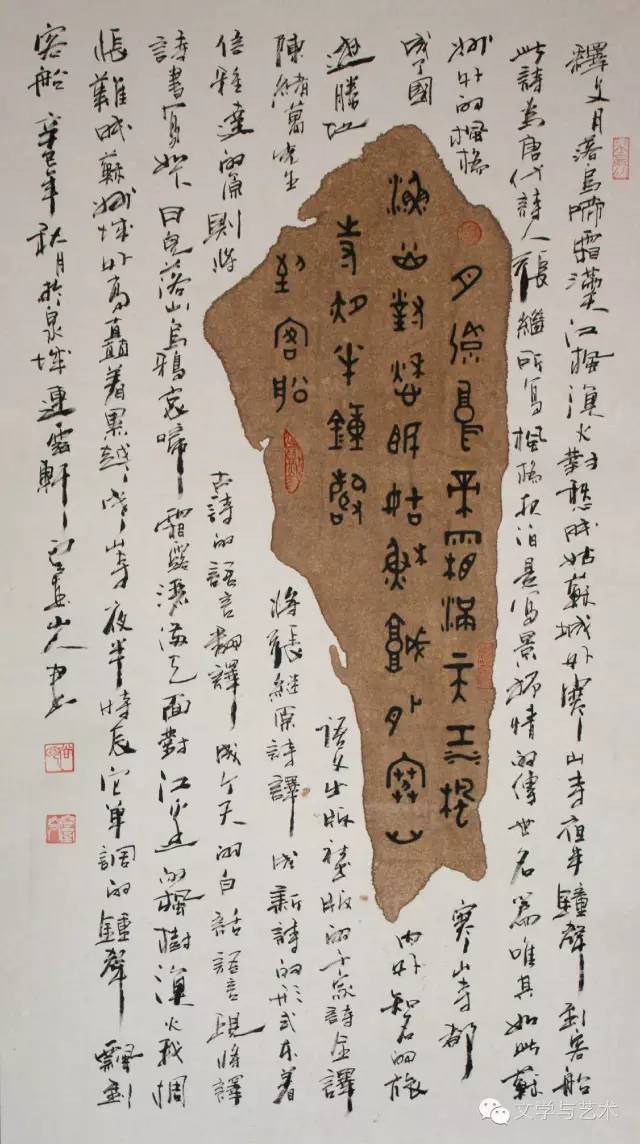 釋文月落烏啼霜滿天江楓漁火對愁眠姑蘇城外寒山寺夜半鐘聲到客船
此詩為唐代詩人張繼所寫楓橋夜泊是寫景抒情的傳世名篇唯其如此蘇
州外的楓橋寒山寺都
成了國內外知名的旅
遊勝地語文出版社版的千家詩全譯
陳緒萬先生將張繼原詩譯成新詩的形式本着
信雅達的原則將古詩的語言翻譯成今天的白話語言現將譯
詩書寫如下月兒落山烏鴉哀啼霜露滿天面對江邊的楓樹漁火我惆
悵難眠蘇州城外高矗着山寺夜半時辰它單調的鐘聲飄到
客船 辛巳年秋月於泉城連雲軒山人書
月落烏啼霜滿天江楓
漁火對愁眠姑蘇城外寒山
寺夜半鐘聲
到客船
文学与艺术